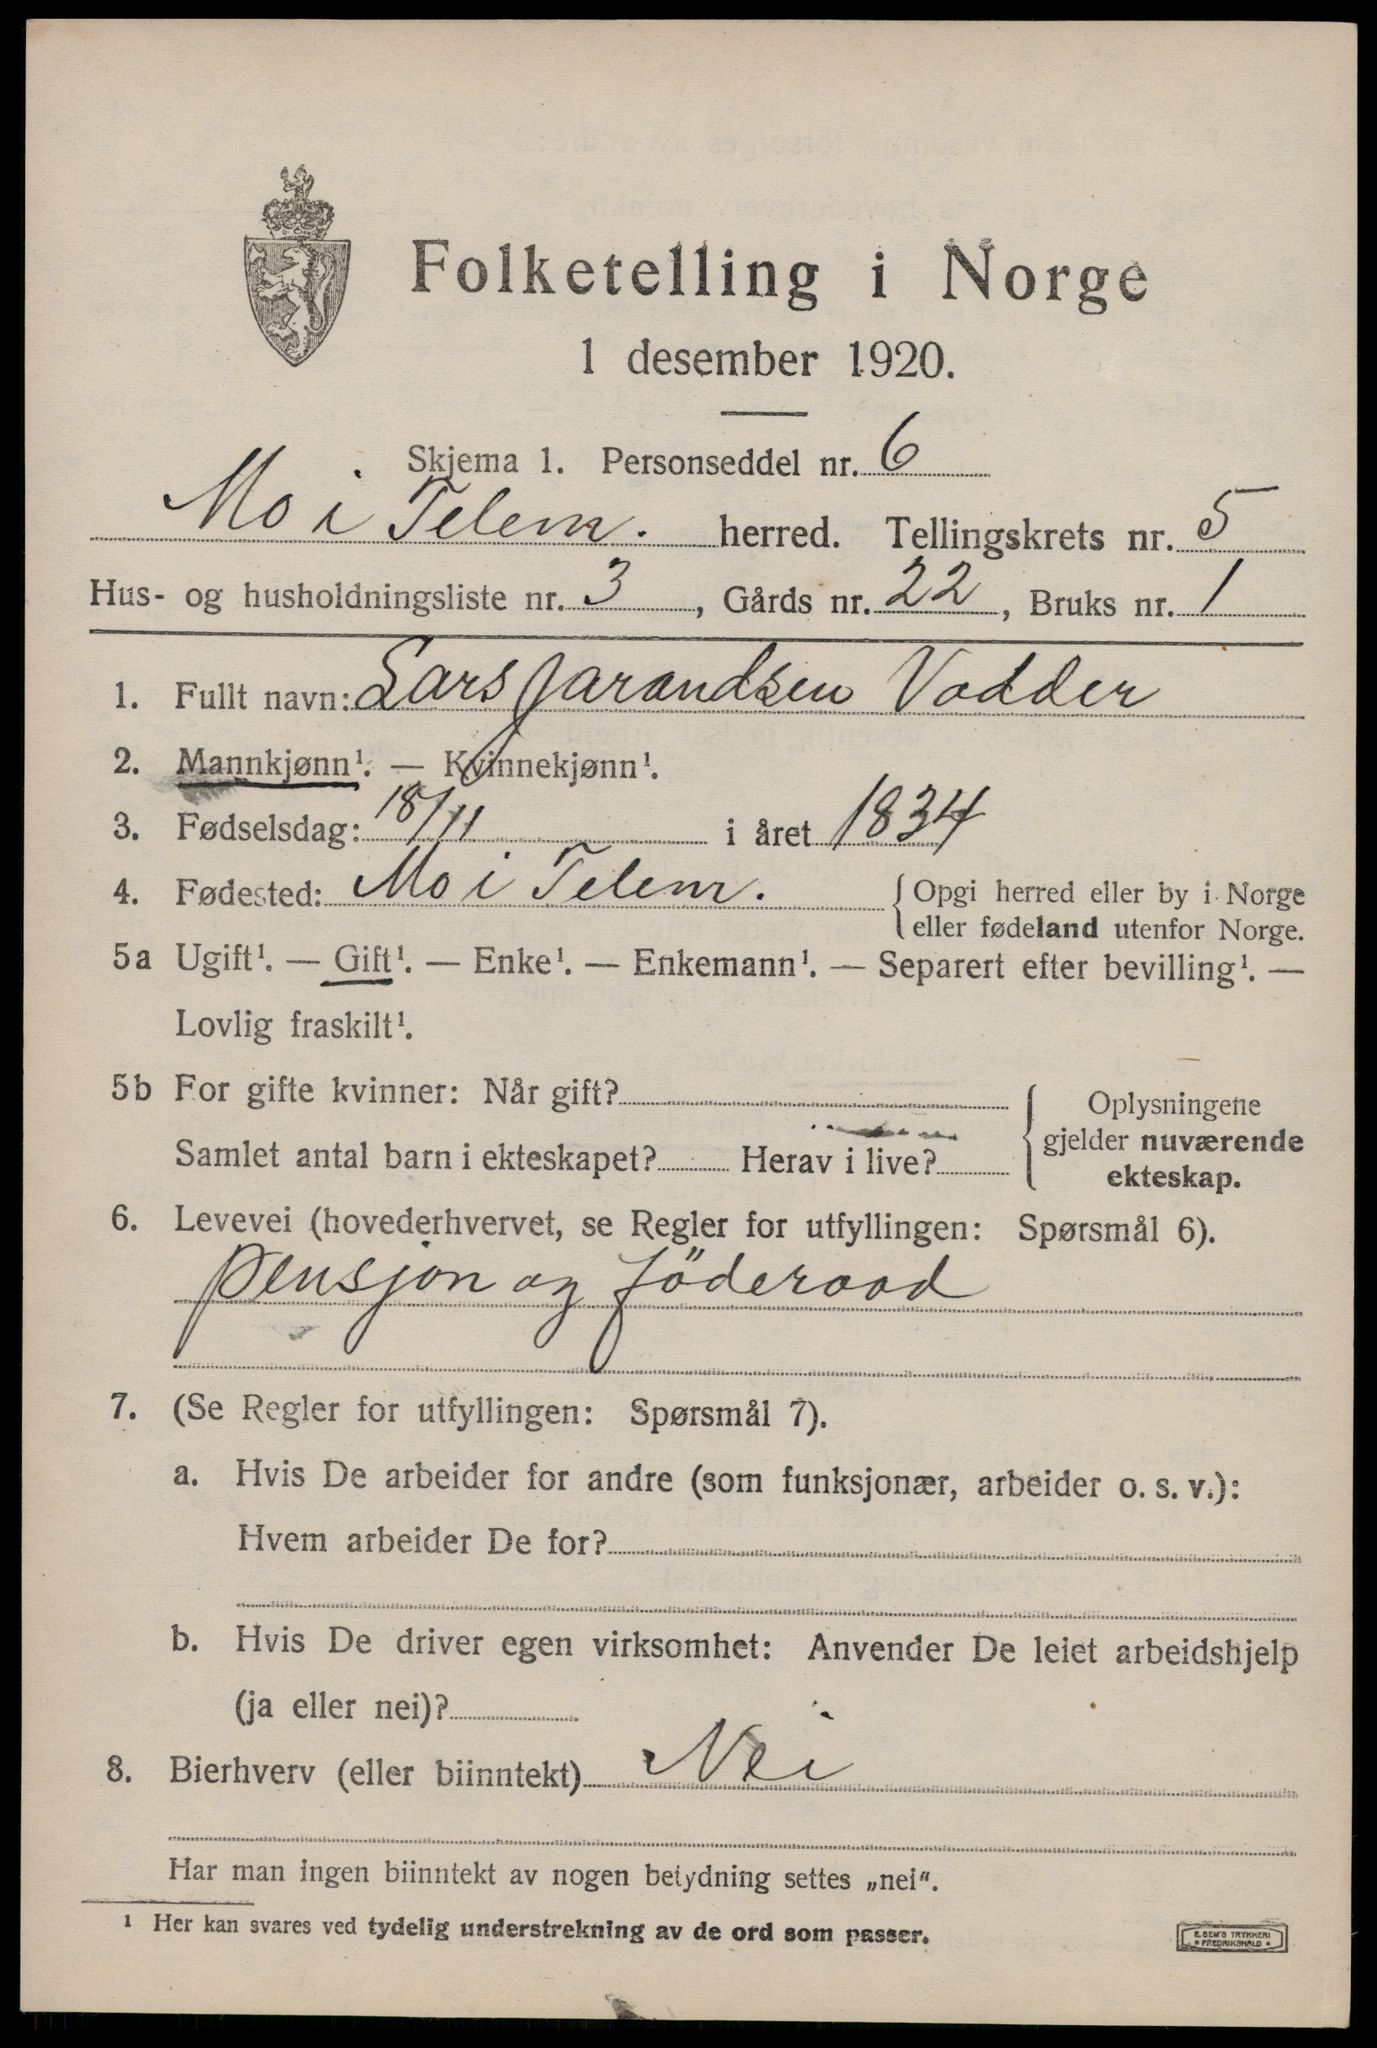 Folketelling i Norge
1 desember 1920.
Skjema 1. Personseddel nr. 6
Mo i Telem. herred. Tellingskrets nr. 5
Hus- og husholdningsliste nr. 3, Gårds nr. 22, Bruks nr. 1
1. Fullt navn: Lars Jarandsen Vadder
2. Mannkjønn¹. — Kvinnekjønn¹.
3. Fødselsdag: 18/11 i året 1834
4. Fødested: Mo i Telem. { Opgi herred eller by i Norge
eller fødeland utenfor Norge.
5a Ugift¹. — Gift¹. — Enke¹. — Enkemann¹. — Separert efter bevilling¹. —
Lovlig fraskilt¹.
5b For gifte kvinner: Når gift?
Samlet antal barn i ekteskapet? Herav i live?
Oplysningene
gjelder nuværende
ekteskap.
6. Levevei (hovederhvervet, se Regler for utfyllingen: Spørsmål 6).
Pensjon og föderaad
7. (Se Regler for utfyllingen: Spørsmål 7).
a. Hvis De arbeider for andre (som funksjonær, arbeider o. s. v.):
Hvem arbeider De for?
b. Hvis De driver egen virksomhet: Anvender De leiet arbeidshjelp
(ja eller nei)?
8. Bierhverv (eller biinntekt) Nei
Har man ingen biinntekt av nogen betydning settes „nei".
¹ Her kan svares ved tydelig understrekning av de ord som passer.
E. SEM'S TRYKKERI
• FREDRIKSHALD •